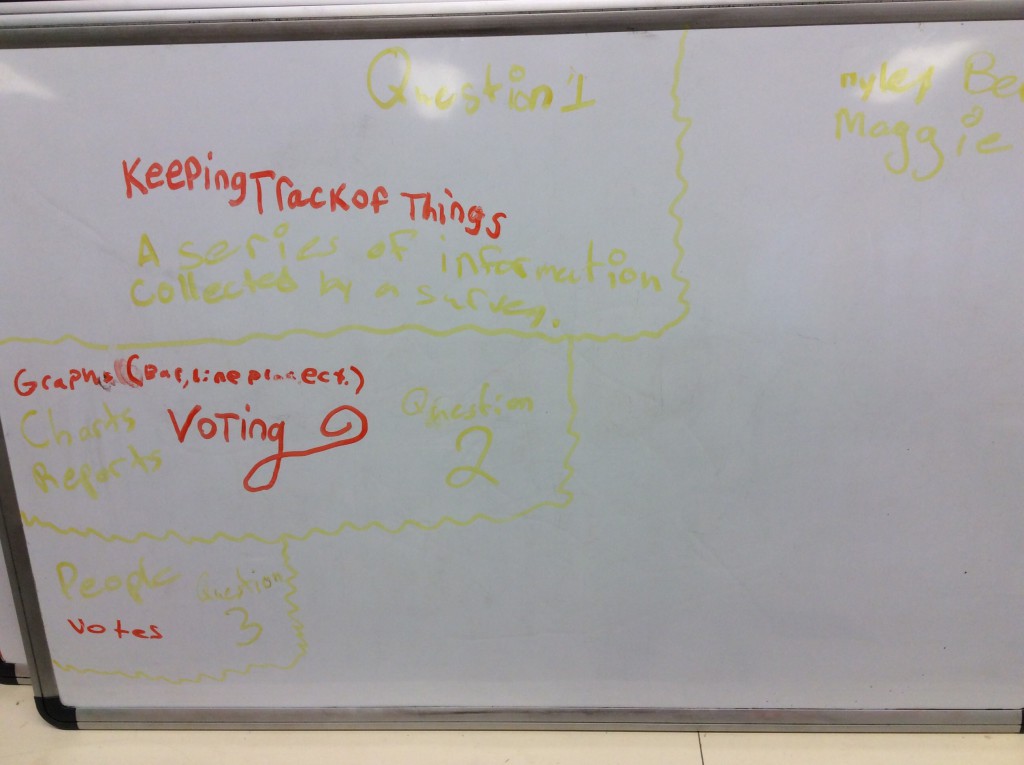 Question 1
Keeping Track of Things
A series of information
collected by a survey.
Graphs (Bar, line ect.)
Charts
Reports
Voting
Question
2
People
Votes
Question
3
Maggie